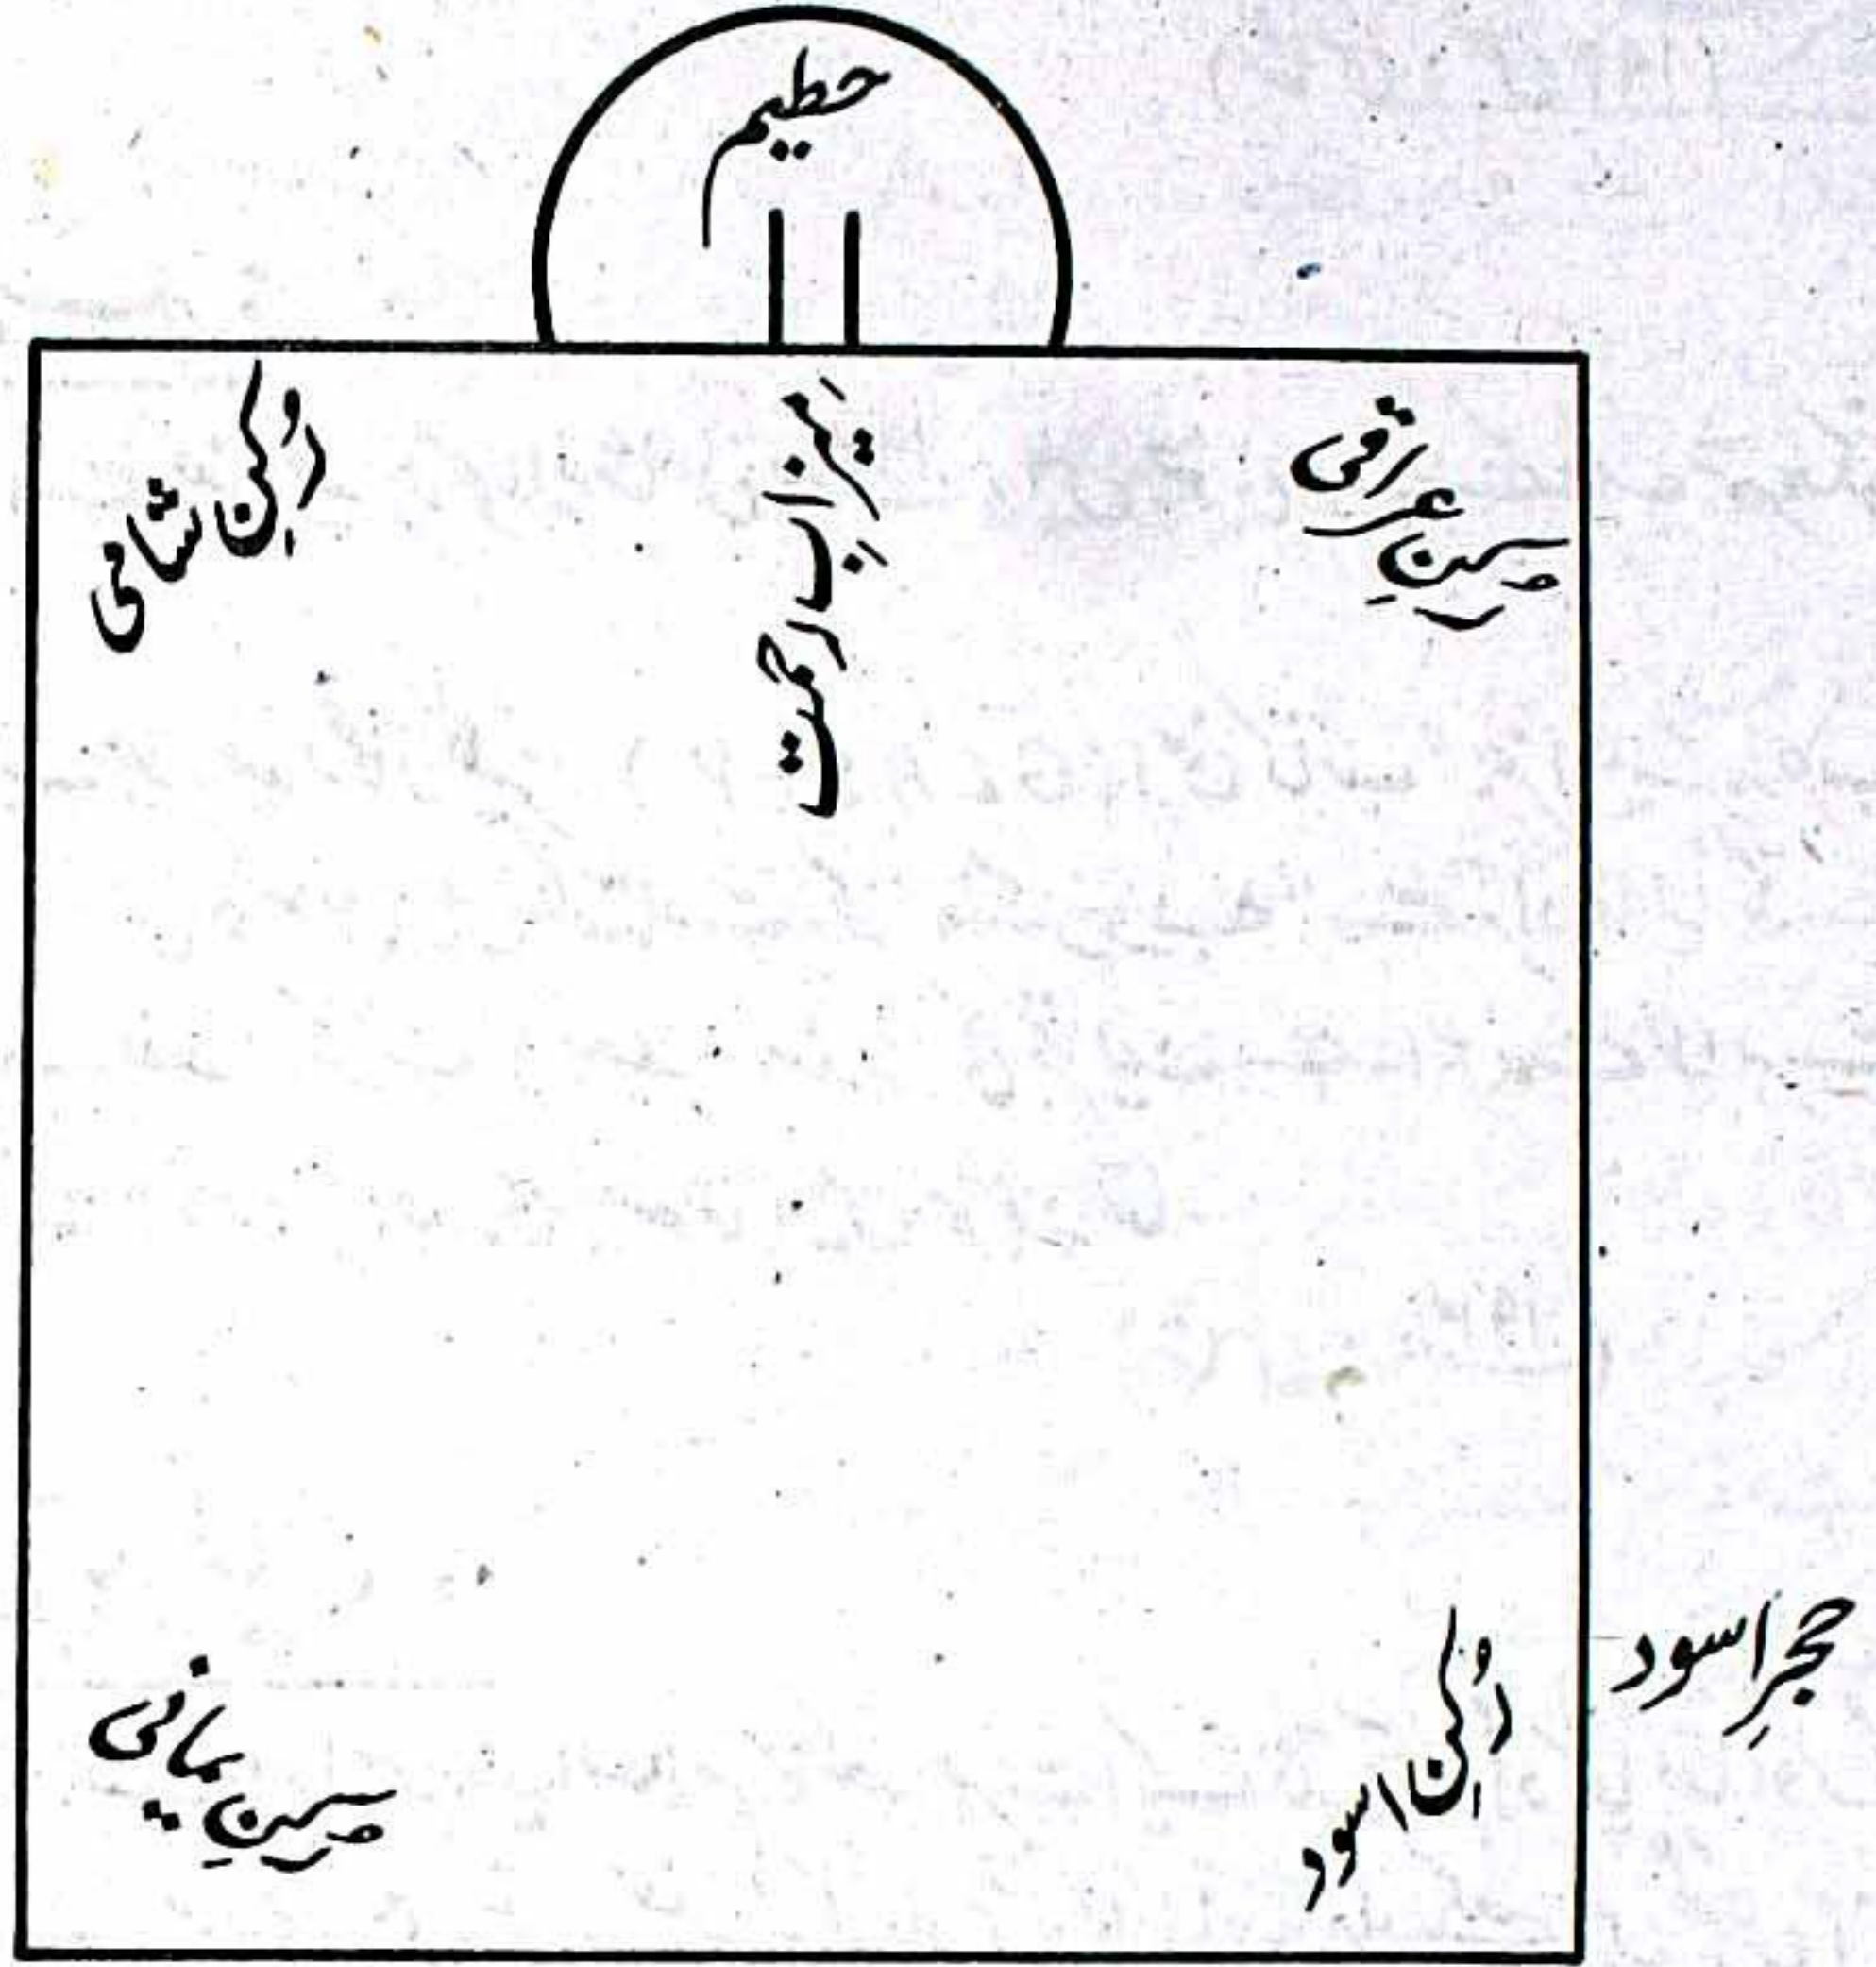 حطیم
رُکنِ عراقی
مِیزابِ رحمت
رُکنِ شامی
حجرِ اسود
رُکنِ اسود
رُکنِ یمانی